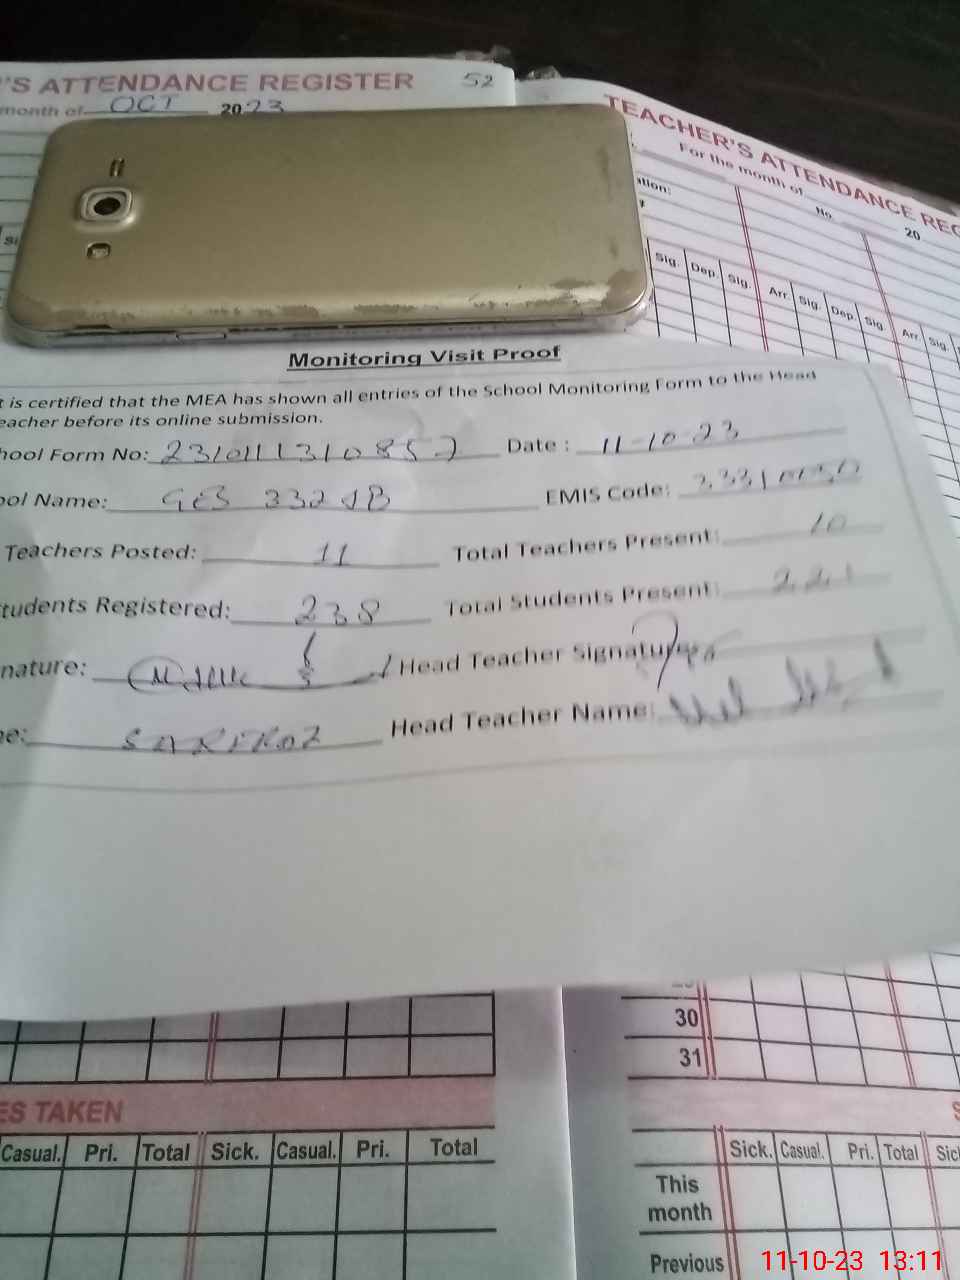 'S ATTENDANCE REGISTER 52
month of OCT 2023
TEACHER'S ATTENDANCE REG
For the month of 20
No.
ation:
Sig. Dep. Sig. Arr. Sig. Dep. Sig. Arr. Sig.
Monitoring Visit Proof
t is certified that the MEA has shown all entries of the School Monitoring Form to the Head
eacher before its online submission.
hool Form No: 2310111310857 Date : 11-10-23
ool Name: GES 332 JB EMIS Code:
Teachers Posted: 11 Total Teachers Present: 10
tudents Registered: 238 Total Students Present: 221
nature: Head Teacher Signature
e: SARFROZ Head Teacher Name:
30
31
ES TAKEN
Casual. Pri. Total Sick. Casual. Pri. Total
Sick. Casual. Pri. Total Sic
This
month
Previous
11-10-23 13:11